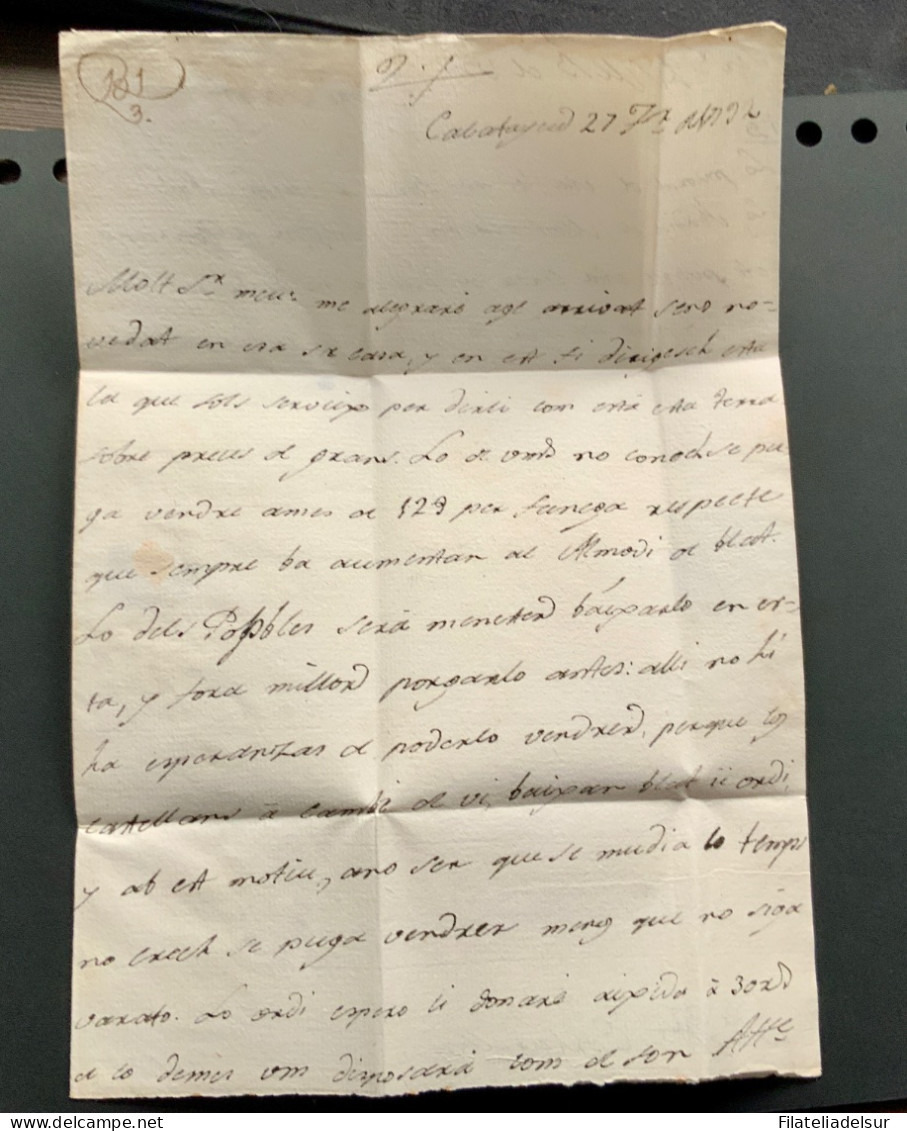 Calatayud 27
Molt Sr. meu: me alegraré age arrivat sens no-
vedat en esa sa casa, y en est fi dirigesch esta
la que sols serveix per dirli com está esta terra
sobre preus de grans. Lo de vmd no conech se pu
ga vendre a mes de per fanega respecte
que sempre ba aumentan al Almodi de blat.
Lo dels será menester báixarlo en es-
ta, y fora millord porgarlo antes: alli no hi
ha esperanzas de poderlo vendrer, perque los
castellans á cambi de vi, baixan blat ii ordi,
y ab est motiu, ano ser que se mudia lo temps
no crech se puga vendrer meng que no siga
varato. Lo ordi espero li donaré á
de lo demes vm disposará com de son
Filateliadelsur